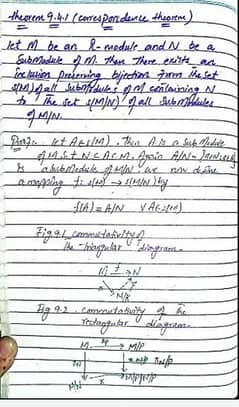 theorem 9.4.1 (correspondence theorem)
let M be an R-module and N be a
Submodule of M. then There exists an
inclusion preserving bijection from the set
S(M) of all submodules of M containing N
to the set S(M/N) of all Submodules
of M/N.
Proof:- let A∈S(M). Then A is a sub Module
of M s.t N⊂A⊂M. Again A/N =
is a submodule of M/N. we now define
a mapping f: S(M) → S(M/N) by
f(A) = A/N ∀ A∈S(M)
Fig 9.1 commutativity of
the triangular diagram.
M f → N
M/K
Fig 9.2 commutativity of the
rectangular diagram.
M → M/P
M/N M/P/N/P